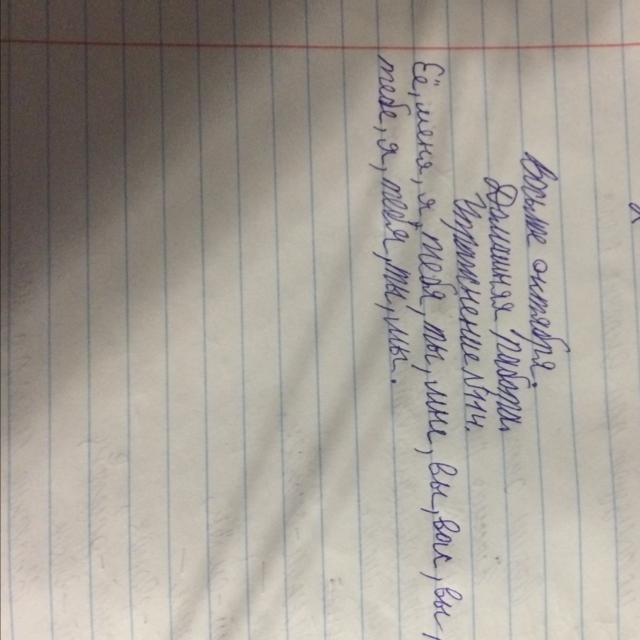 Восьмое октября.
Домашняя работа
Упражнение №111
Её, меня, я, тебя, ты, мне, вы, вам, вы,
тебе, я, тебя, ты, мы.